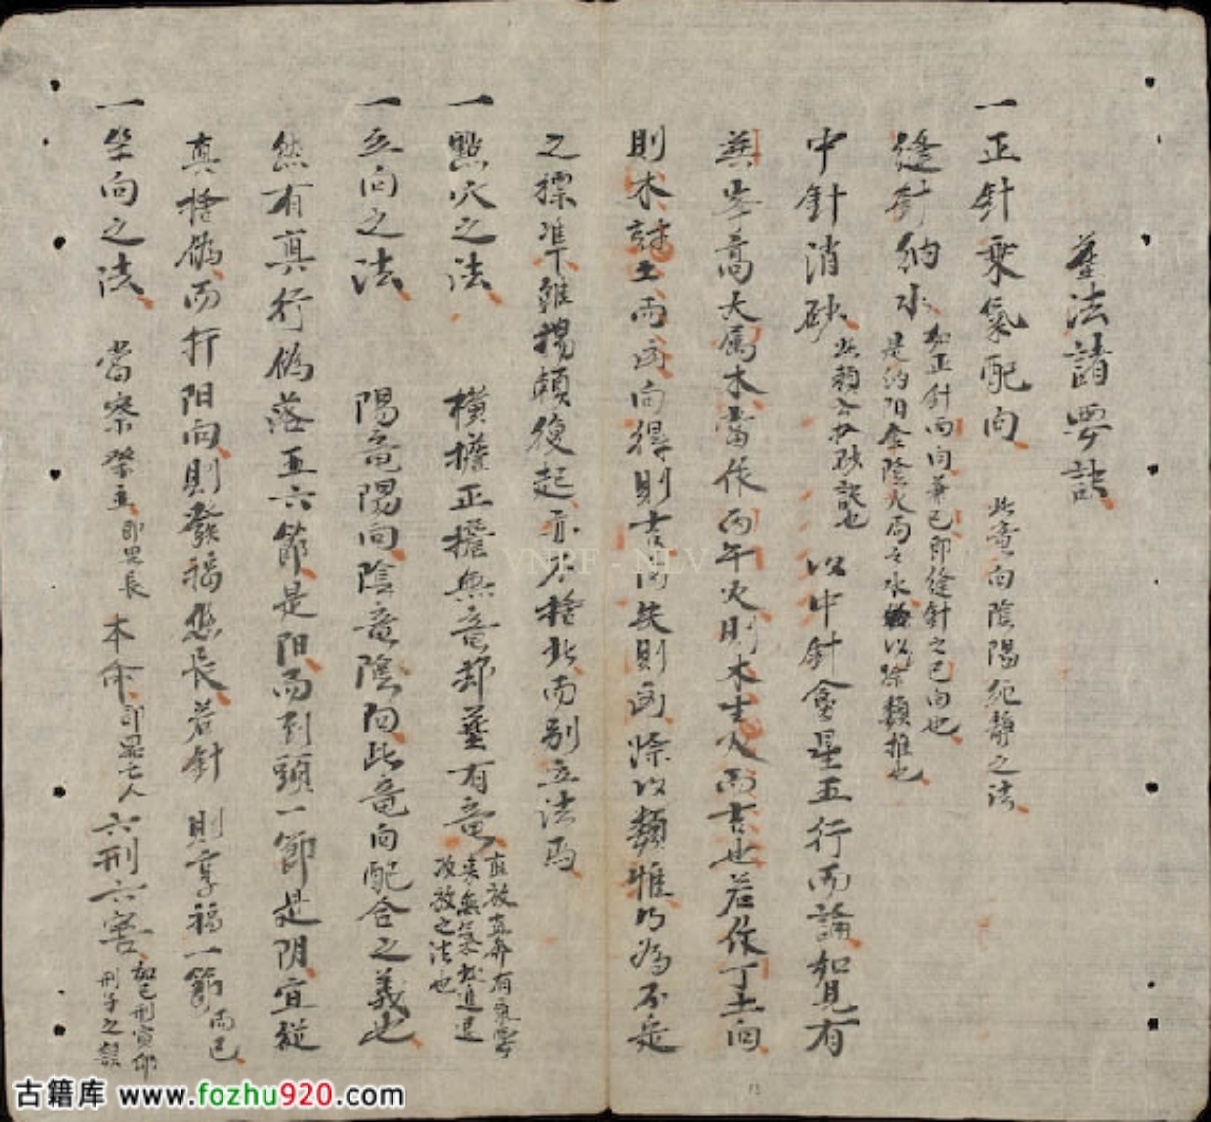 葬法諸要訣
一正針乘氣配向 此竜向陰陽純静之法
縫針納水 如正針丙向兼巳即縫針之巳向也
是納阳金陰火局之水 以餘類推也
中針消砂 此頼公扒砂訣也 以中針盒星五行而論如見有
異峯高大属木當作丙午火則木生火而吉也若作丁土向
則木尅土而凶向得則吉向失則凶餘以類惟以為不是
之標準雖楊頼復起亦不捨此而别立法焉
一點穴之法 橫擔正擔無竜却葬有竜 直放直奔有氣要
來無氣
放之法也
一立向之法 陽竜陽向陰竜陰向此竜向配合之義也
然有真行偽落五六節是阳而到頭一節是阴宜從
真捨偽而行阳向則發福悠長若針 則享福一節而已
一坐向之法 當察祭主即男長 本命即是亡人 六刑六害 如巳刑寅卯
刑子之類
VNPF - NLV
12
古籍库 www.fozhu920.com